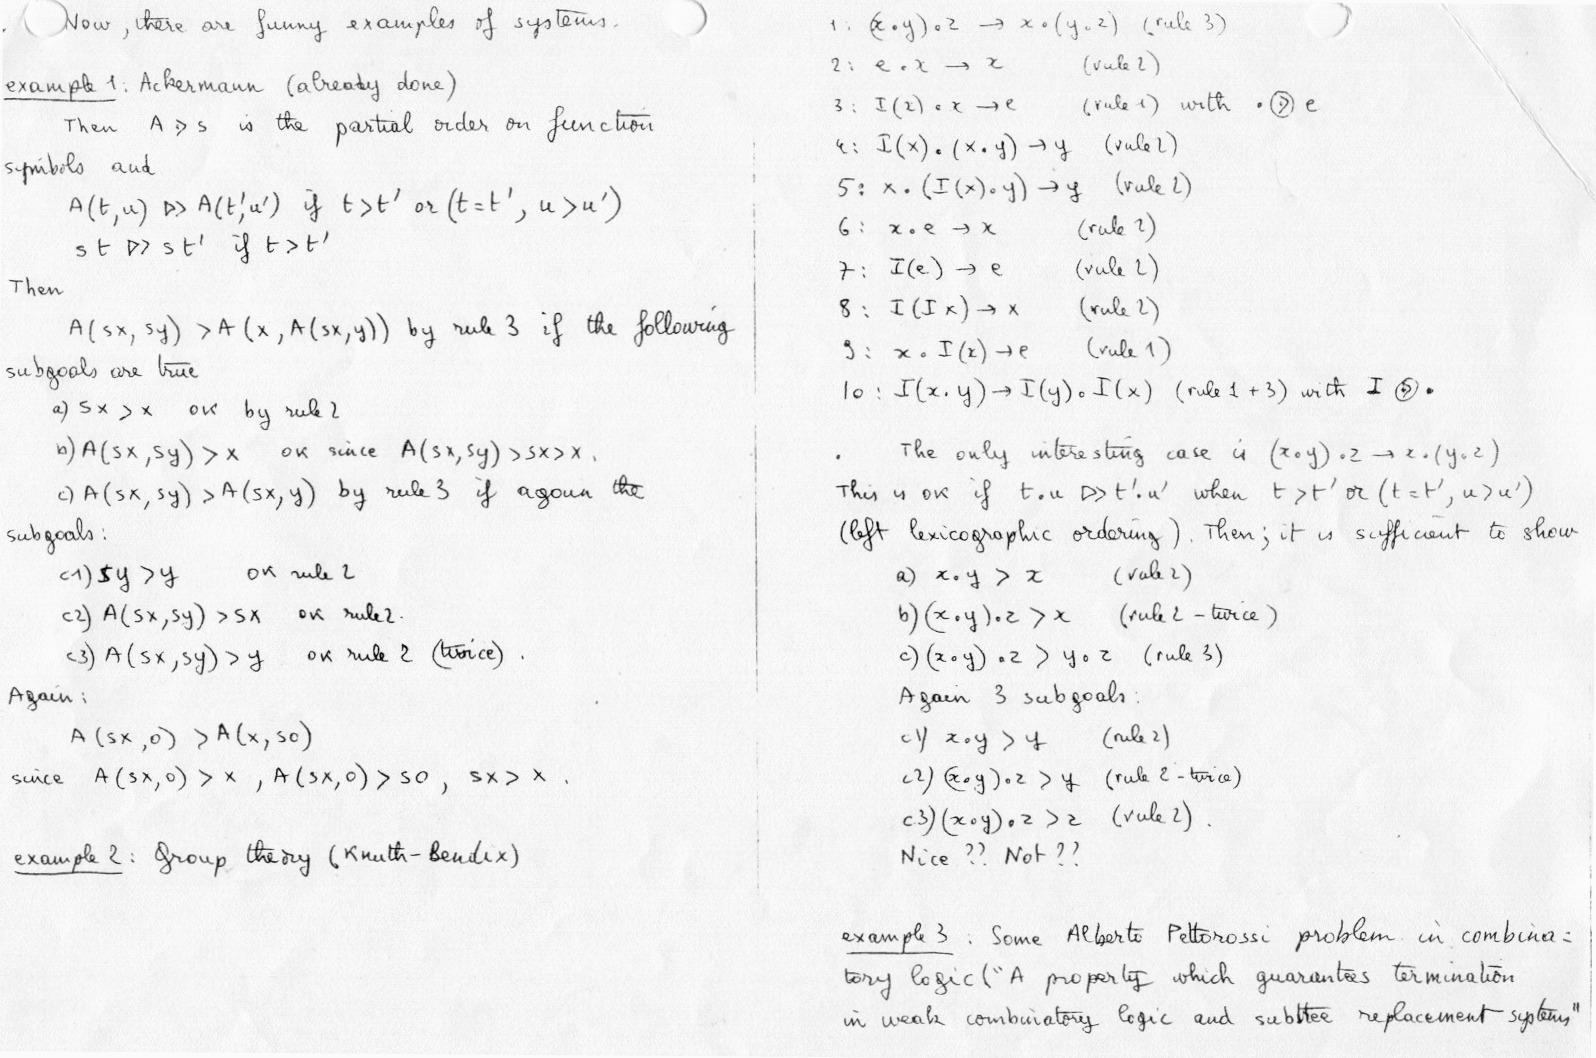 Now, there are funny examples of systems.
example 1: Ackermann (already done)
Then A ⩾ s is the partial order on function
symbols and
A(t,u) ▷> A(t',u') if t>t' or (t=t', u>u')
s t ▷> s t' if t>t'
Then
A(sx, sy) > A(x, A(sx,y)) by rule 3 if the following
subgoals are true
a) sx > x ok by rule 2
b) A(sx,sy) > x ok since A(sx,sy) > sx > x.
c) A(sx,sy) > A(sx,y) by rule 3 if again the
subgoals:
c1) sy > y ok rule 2
c2) A(sx,sy) > sx ok rule 2.
c3) A(sx,sy) > y ok rule 2 (twice).
Again:
A(sx,0) > A(x,s0)
since A(sx,0) > x, A(sx,0) > s0, sx > x.
example 2: Group theory (Knuth-Bendix)
1: (x.y).z → x.(y.z) (rule 3)
2: e.x → x (rule 2)
3: I(x).x → e (rule 1) with . ⩾ e
4: I(x).(x.y) → y (rule 2)
5: x.(I(x).y) → y (rule 2)
6: x.e → x (rule 2)
7: I(e) → e (rule 2)
8: I(I x) → x (rule 2)
9: x.I(x) → e (rule 1)
10: I(x.y) → I(y).I(x) (rule 1+3) with I ⩾ .
. The only interesting case is (x.y).z → x.(y.z)
This is ok if t.u ▷> t'.u' when t>t' or (t=t', u>u')
(left lexicographic ordering). Then; it is sufficient to show
a) x.y > x (rule 2)
b) (x.y).z > x (rule 2 - twice)
c) (x.y).z > y.z (rule 3)
Again 3 subgoals:
c1) x.y > y (rule 2)
c2) (x.y).z > y (rule 2 - twice)
c3) (x.y).z > z (rule 2).
Nice ?? Not ??
example 3: Some Alberto Pettorossi problem in combina=
tory logic ("A property which guarantees termination
in weak combinatory logic and subtree replacement systems"